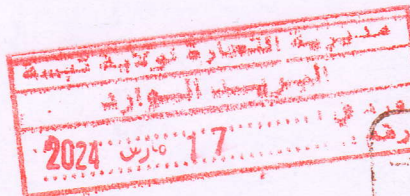 مديرية التجارة لولاية تبسة
البريد الوارد
ورد في 17 مارس 2024